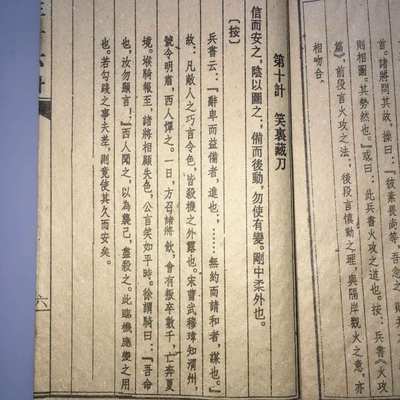 首。諸將問其故，操曰：『彼素畏尚等，吾急之
則相圖，其勢然也。』或曰：此兵書火攻之道也。按：兵書《火攻
篇》，前段言火攻之法，後段言慎動之理，與隔岸觀火之意，亦
相吻合。
第十計　笑裏藏刀
信而安之，陰以圖之；備而後動，勿使有變。剛中柔外也。
〔按〕
兵書云：『辭卑而益備者，進也，……無約而請和者，謀也。』
故：凡敵人之巧言令色，皆殺機之外露也。宋曹武穆瑋知渭州，
號令明肅，西人憚之。一日，方召諸將飲，會有叛卒數千，亡奔夏
境。堠騎報至，諸將相顧失色，公言笑如平時。徐謂騎曰：『吾命
也，汝勿顯言！』西人聞之，以為襲己，盡殺之。此臨機應變之用
也。若勾踐之事夫差，則竟使其久而安矣。
三十六計
六